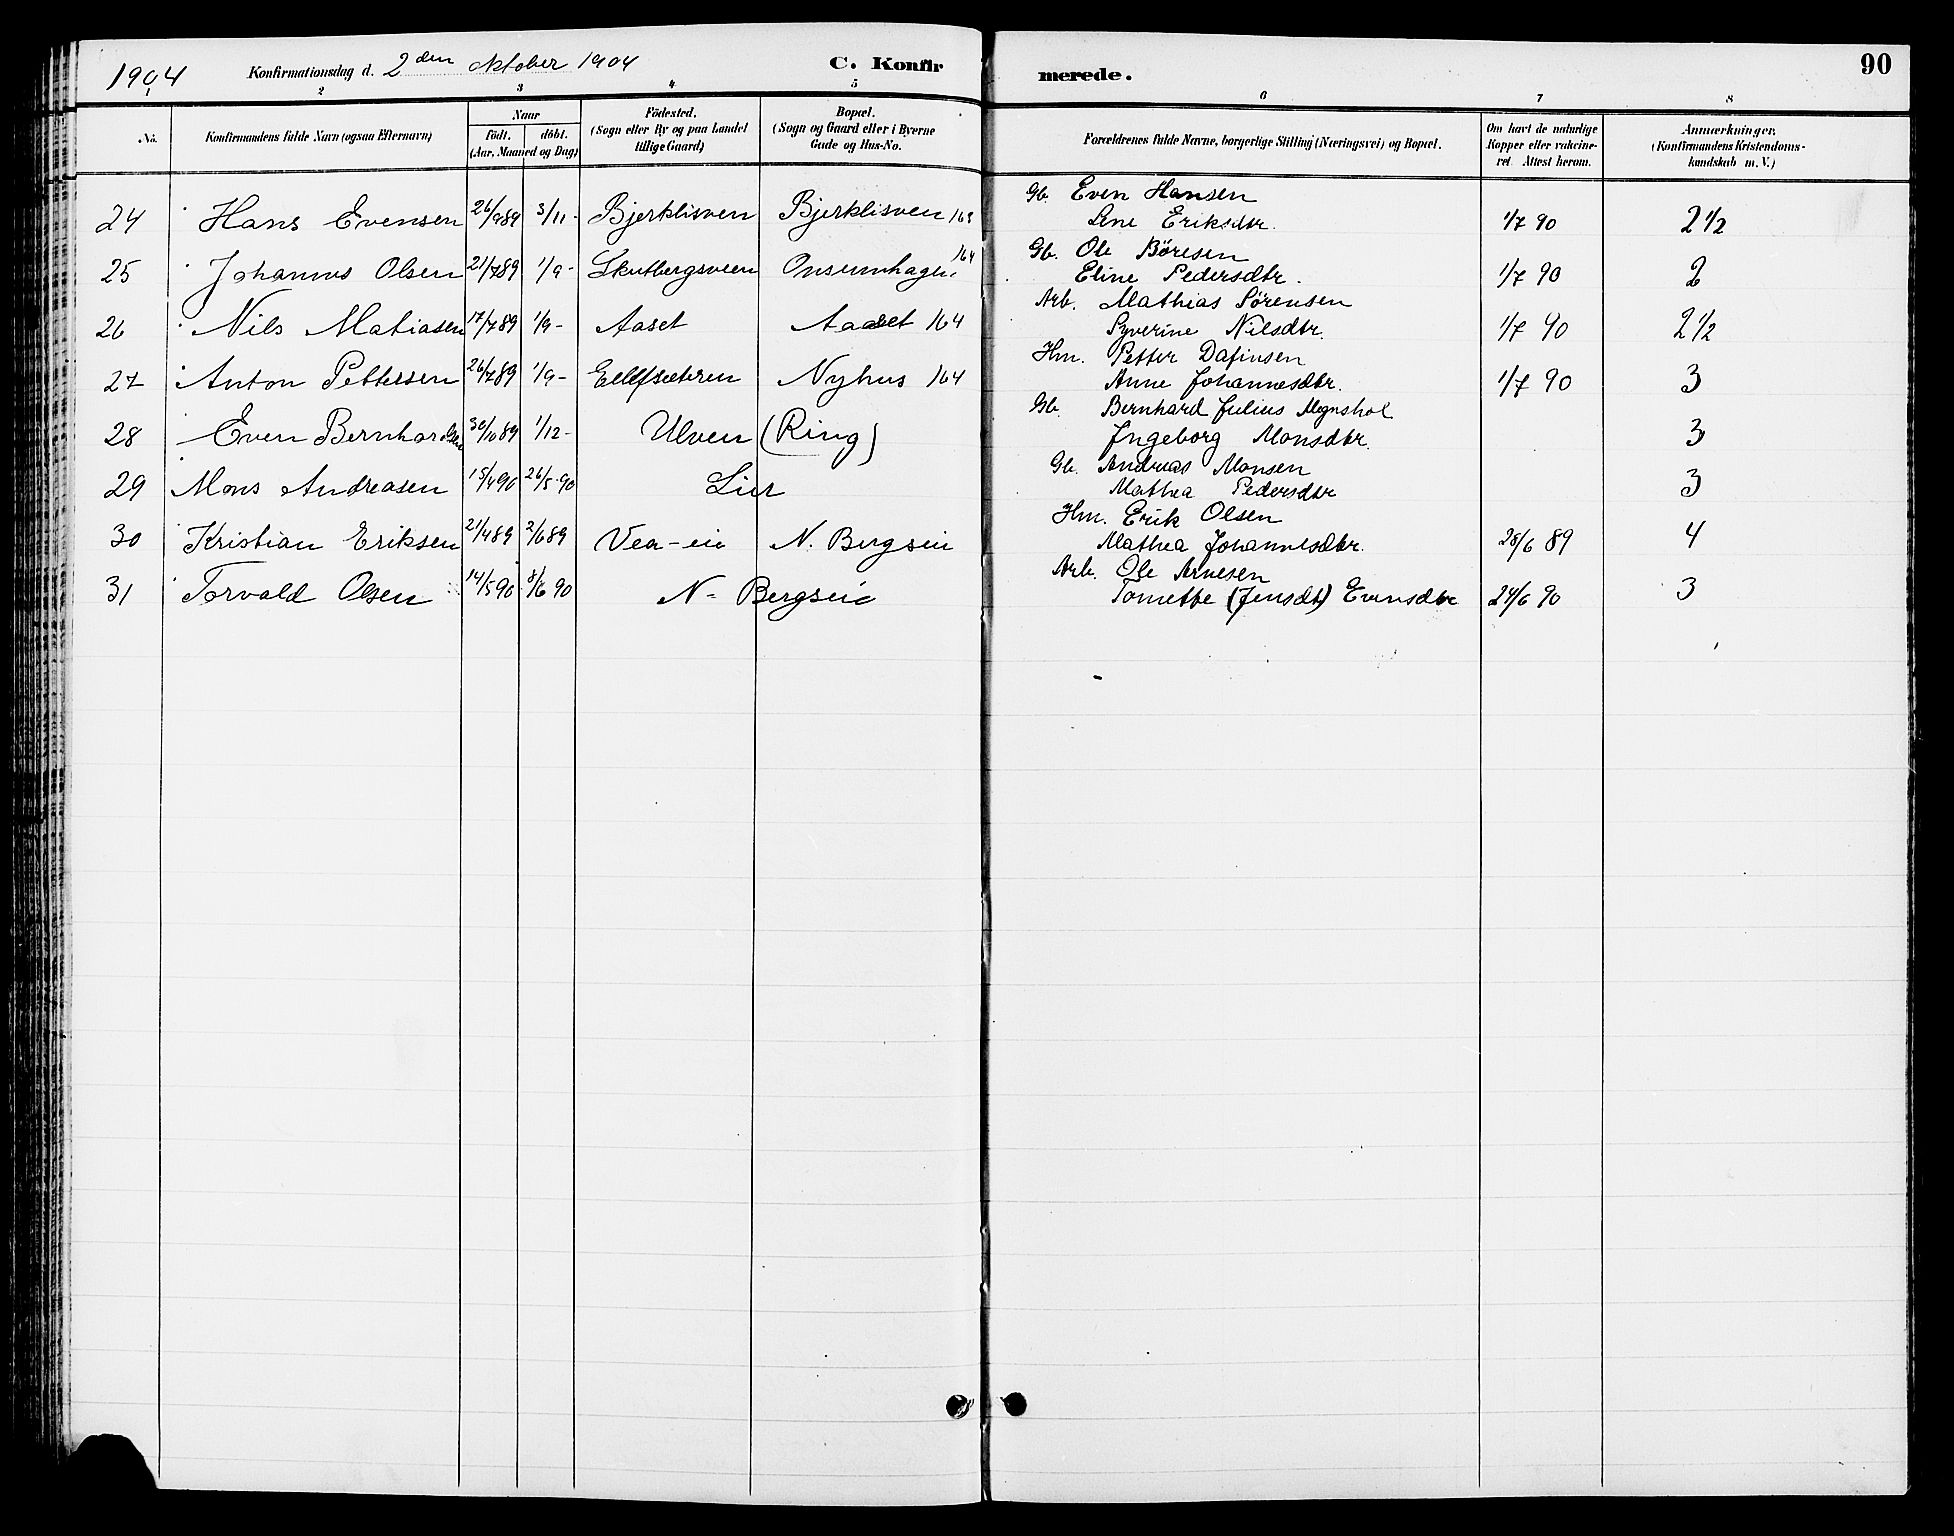 1904 Konfirmationsdag d. 2den Oktober 1904 C. Konfirmerede. 90
2 3 4 5 6 7 8
No. Konfirmandens fulde Navn (ogsaa Efternavn) Naar födt. döbt. (Aar, Maaned og Dag) Födested. (Sogn eller By og paa Landet tillige Gaard) Bopæl. (Sogn og Gaard eller i Byerne Gade og Hus-No. Forældrenes fulde Navne, borgerlige Stilling (Næringsvei) og Bopæl. Om havt de naturlige Kopper eller vakcineret. Attest herom. Anmærkninger. (Konfirmandens Kristendomskundskab m. V.)
24 Hans Evensen 26/9 89 3/11 - Bjerklisven Bjerklisven 163 Gb. Even Hansen
Lene Eriksdtr. 1/7 90 2 1/2
25 Johannes Olsen 21/7 89 1/9 - Skutbergsveen Onsumhagen 164 Gb. Ole Böresen
Eline Pedersdtr. 1/7 90 2
26 Nils Matiasen 17/7 89 1/9 - Aaset Aaset 164 Arb. Mathias Sörensen
Syverine Nilsdtr. 1/7 90 2 1/2
27 Anton Pettersen 26/7 89 1/9 - Eellfsæteren Nyhus 164 Hm. Petter Dafinsen
Anne Johannesdtr. 1/7 90 3
28 Even Bernhardsen 30/10 89 1/12 - Ulven (Ring) Gb. Bernhard Julius Mognshol
Ingeborg Monsdtr. 3
29 Mons Andreasen 15/4 90 26/5 90 Lier Gb. Andreas Monsen
Mathea Pedersdtr 3
30 Kristian Eriksen 21/4 89 2/6 89 Vea-eie N. Bergseie Hm. Erik Olsen
Mathea Johannesdtr. 28/6 89 4
31 Torvald Olsen 14/5 90 8/6 90 N- Bergseie Arb. Ole Arnesen
Tomette (Jensdt) Evensdtr 24/6 90 3